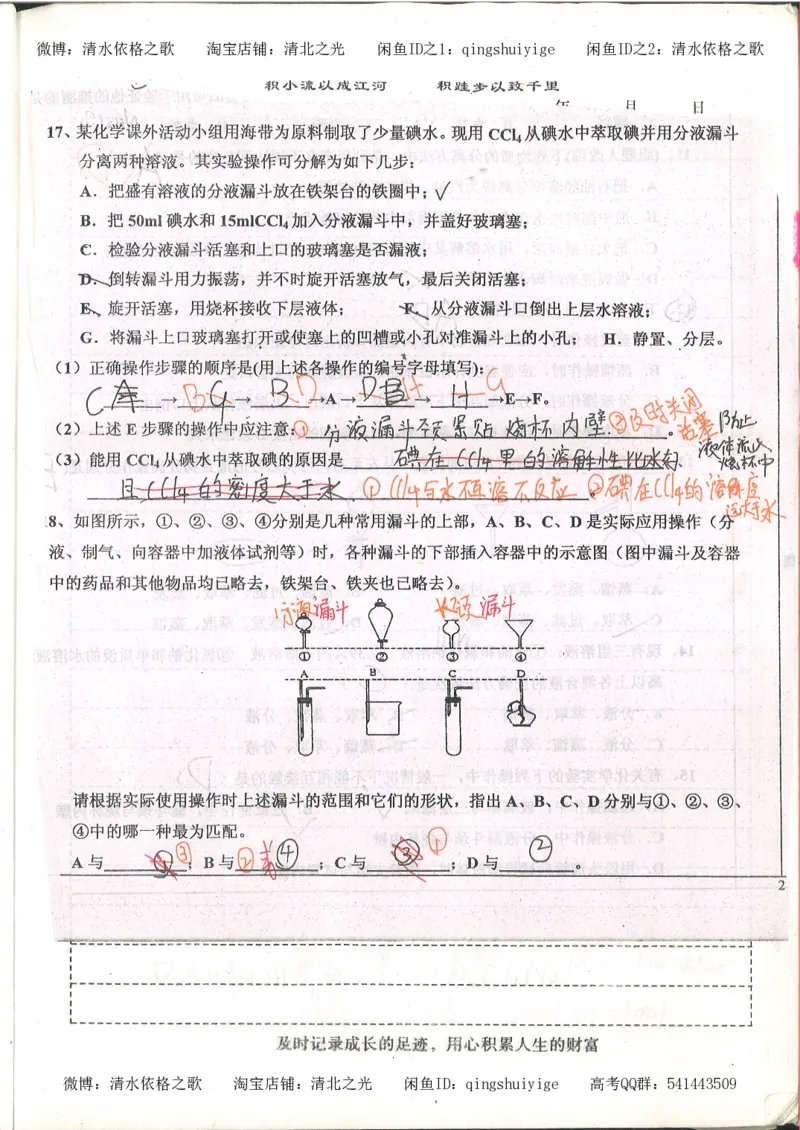 微博：清水依格之歌 淘宝店铺：清北之光 闲鱼ID之1：qingshuiyige 闲鱼ID之2：清水依格之歌
积小流以成江河 积跬步以致千里
年 月 日
17、某化学课外活动小组用海带为原料制取了少量碘水。现用 CCl₄ 从碘水中萃取碘并用分液漏斗
分离两种溶液。其实验操作可分解为如下几步：
A．把盛有溶液的分液漏斗放在铁架台的铁圈中；√
B．把 50ml 碘水和 15mlCCl₄ 加入分液漏斗中，并盖好玻璃塞；
C．检验分液漏斗活塞和上口的玻璃塞是否漏液；
D、倒转漏斗用力振荡，并不时旋开活塞放气，最后关闭活塞；
E、旋开活塞，用烧杯接收下层液体； F、从分液漏斗口倒出上层水溶液；
G．将漏斗上口玻璃塞打开或使塞上的凹槽或小孔对准漏斗上的小孔； H．静置、分层。
（1）正确操作步骤的顺序是(用上述各操作的编号字母填写)：
C → B G → B D →A→ D H → H G →E→F。
（2）上述 E 步骤的操作中应注意：① 分液漏斗颈紧贴烧杯内壁 ②及时关闭 。
活塞 防止
液体流出
烧杯中
（3）能用 CCl₄ 从碘水中萃取碘的原因是 碘在CCl₄里的溶解性比水好
且CCl₄的密度大于水 ①CCl₄与水互溶不反应 。②碘在CCl₄的溶解度
远大于水
8、如图所示，①、②、③、④分别是几种常用漏斗的上部，A、B、C、D 是实际应用操作（分
液、制气、向容器中加液体试剂等）时，各种漏斗的下部插入容器中的示意图（图中漏斗及容器
中的药品和其他物品均已略去，铁架台、铁夹也已略去）。
分液漏斗 长颈漏斗
① ② ③ ④
A B C D
请根据实际使用操作时上述漏斗的范围和它们的形状，指出 A、B、C、D 分别与①、②、③、
④中的哪一种最为匹配。
A 与 ① ③ ；B 与 ② ④ ；C 与 ③ ① ；D 与 ② 。
2
及时记录成长的足迹，用心积累人生的财富
微博：清水依格之歌 淘宝店铺：清北之光 闲鱼ID：qingshuiyige 高考QQ群：541443509